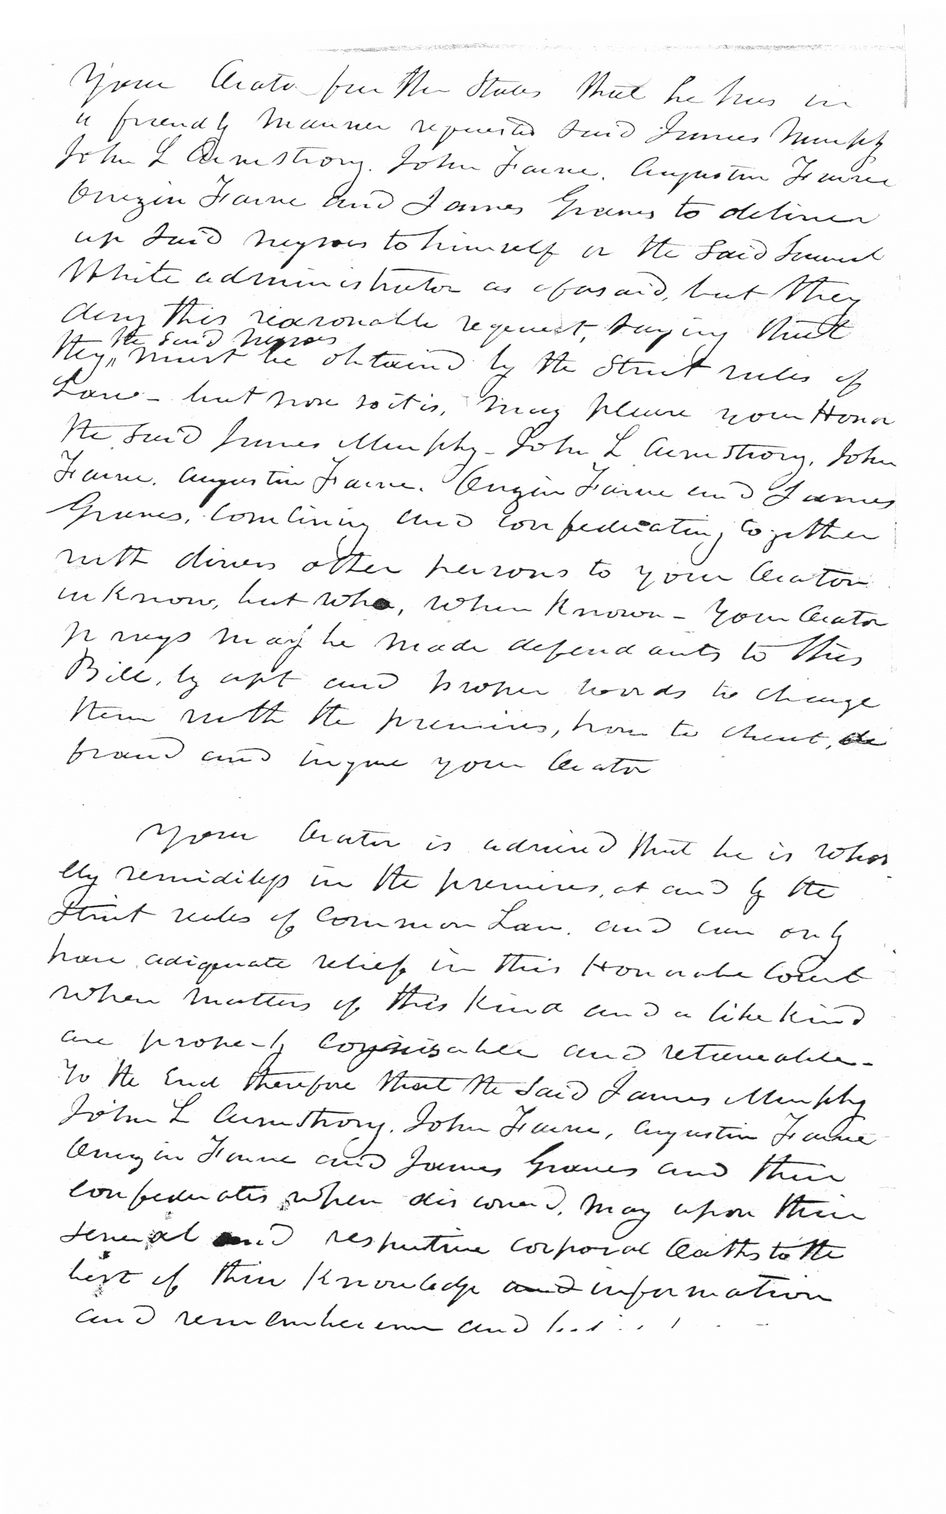 Your Orator further States that he has in
a friendly manner requested said James Murphy
John L Armstrong. John Farne. Augustin Farne
Onezin Farne and James Graves to deliver
up said negroes to himself or the said Samuel
White administrator as afosaid, but they
deny this reasonable request, saying that
they the said Negroes must be obtained by the Strict rules of
Law - but now so it is, may please your Honor
the said James Murphy - John L Armstrong, John
Farne. Augustin Farne. Onezin Farne and James
Graves, combining and confederating together
with divers other persons to your Orator
unknow, but who, when known - Your Orator
prays may be made defendants to this
Bill, by apt and proper words to charge
them with the premises, how to cheat, de
fraud and injure your Orator
Your Orator is advised that he is who
lly remidiless in the premises, at and by the
Strict rules of Common Law. and can only
have adiquate relief in this Honorable Court
when matters of this kind and a like kind
are properly cognisable and retrieveable -
To the End therefore that the said James Murphy
John L Armstrong. John Farne, Augustin Farne
Onezin Farne and James Graves and their
confederates when discoverd, may upon their
several and respective corporal Oaths to the
best of their Knowledge and information
and rememberence and